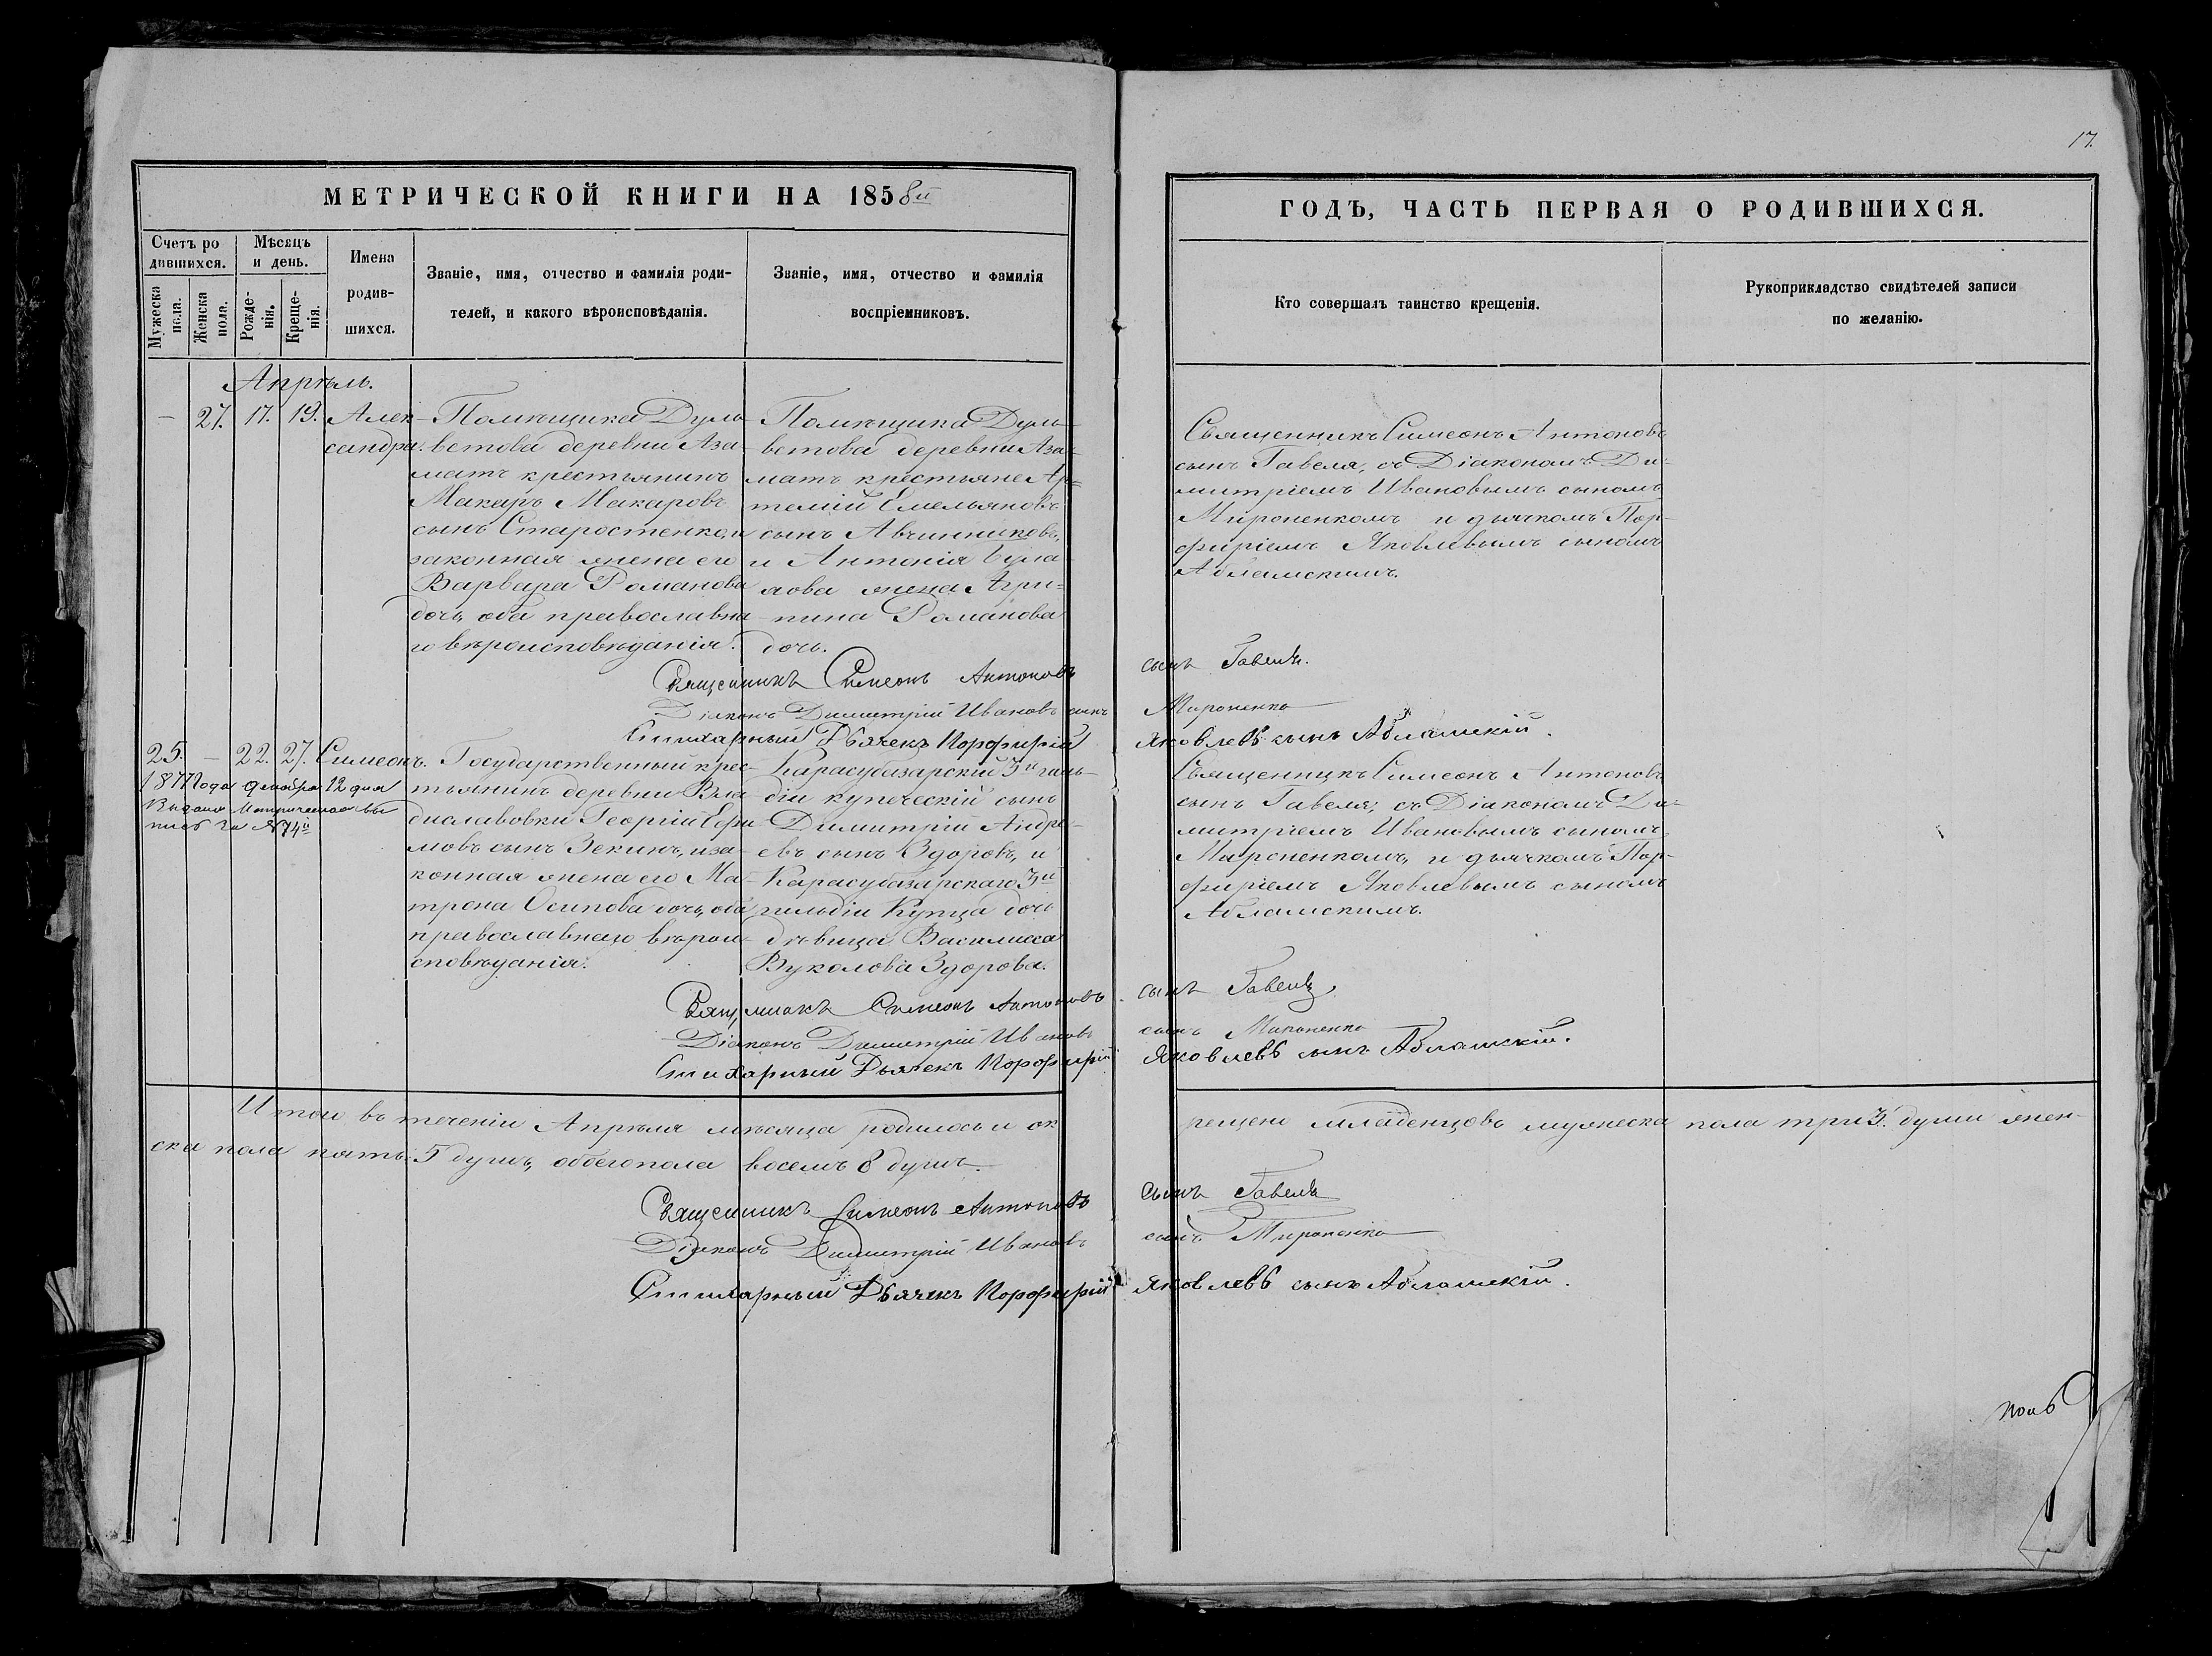 17.
МЕТРИЧЕСКОЙ КНИГИ НА 1858й
ГОДЪ, ЧАСТЬ ПЕРВАЯ О РОДИВШИХСЯ.
Счетъ ро
дившихся.
Мѣсяцъ
и день.
Мужеска
пола.
Женска
пола.
Рожде-
нія.
Креще-
нія.
Имена
родив-
шихся.
Званіе, имя, отчество и фамилія роди-
телей, и какого вѣроисповѣданія.
Званіе, имя, отчество и фамилія
воспріемниковъ.
Кто совершалъ таинство крещенія.
Рукоприкладство свидѣтелей записи
по желанію.
Апрѣль.
— 27. 17. 19. Алек-
сандра.
Помѣщика Дуль-
ветова деревни Аза-
матъ крестьянинъ
Макаръ Макаровъ
сынъ Старостенко, и
законная жена его
Варвара Романова
дочь, оба православна-
го вѣроисповѣданія.
Помѣщика Дуль-
ветова деревни Аза-
матъ крестьяне Ар-
темій Емельяновъ
сынъ Авчинниковъ,
и Антонія
жена Агри-
пина Романова
дочь.
Священникъ Симеонъ Антоновъ
сынъ Гавеля, съ Діакономъ Ди-
митріемъ Ивановымъ сыномъ
Мироненкомъ и дьячкомъ Пор-
фиріемъ Яковлевымъ сыномъ
Абламскимъ.
Священникъ Симеонъ Антоновъ сынъ Гавель.
Діаконъ Димитрій Ивановъ сынъ Мироненко
Стихарный Дьячекъ Порфирій Яковлевъ сынъ Абламскій.
25. — 22. 27. Симеонъ.
1877 года Декабря 12 дня
Выдана Метрическая вы
пись за №74й
Государственный крес-
тьянинъ деревни Вла-
диславовки Георгій Ефи-
мовъ сынъ Зекинъ, и за-
конная жена его Ма-
трона Осипова дочь, оба
православнаго вѣрои-
сповѣданія.
Карасубазарскій 3й гиль-
діи купеческій сынъ
Димитрій Андре-
евъ сынъ Здоровъ, и
Карасубазарскаго 3й
гильдіи Купца дочь
дѣвица Василиса
Вуколова Здорова.
Священникъ Симеонъ Антоновъ
сынъ Гавеля, съ Діакономъ Ди-
митріемъ Ивановымъ сыномъ
Мироненкомъ, и дьячкомъ Пор-
фиріемъ Яковлевымъ сыномъ
Абламскимъ.
Священникъ Симеонъ Антоновъ сынъ Гавель.
Діаконъ Димитрій Ивановъ сынъ Мироненко
Стихарный Дьячекъ Порфирій Яковлевъ сынъ Абламскій.
Итого въ теченіи Апрѣля мѣсяца родилось и ок рещено младенцовъ мужеска пола три 3. души жен-
ска пола пять 5 душъ, обоего пола восемь 8 душъ.
Священникъ Симеонъ Антоновъ сынъ Гавель
Діаконъ Димитрій Ивановъ сынъ Мироненко
Стихарный Дьячекъ Порфирій Яковлевъ сынъ Абламскій.